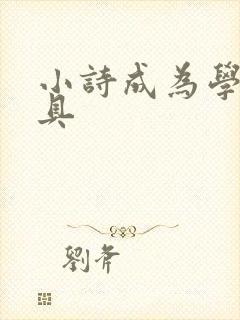 小詩成為學
具
劉斧